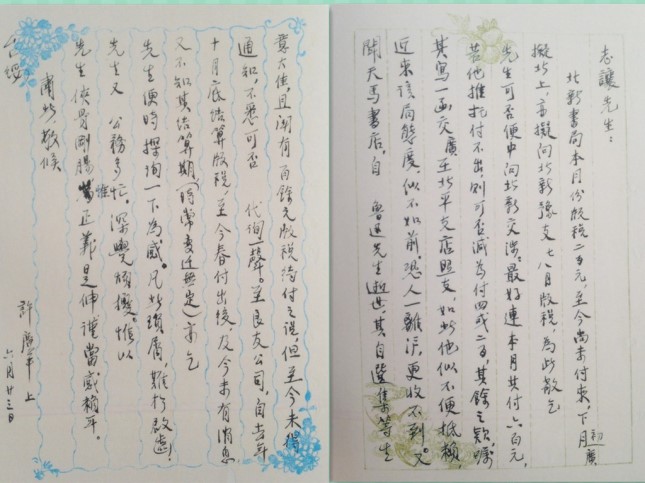 志讓先生：
北新書局本月份版税二百元，至今尚未付来，下月初廣
擬北上，亦擬向北新豫支七八月版税，為此敬乞
先生可否便中向北新交涉：最好連本月共付六百元，
若他推托付不出，則可否減為付四或二百，其餘之款，囑
其寫一函交廣至北平支店照支，如此他似不便抵賴，
近來該局態度，似不如前，恐人一離滬，更收不到。又
聞天馬書店，自 魯迅先生逝世，其自選集等生
意大佳，且聞有百餘元版税待付之說，但至今未得
通知，不悉可否 代詢一聲。至良友公司，自去年
十月底結算版税，至今春付出後，及今未有消息
又不知其結算期(時常变迁無定)亦乞
先生便時探詢一下為感。凡此瑣屑，難於啟齒，
先生又 公務多忙。深覺煩擾。惟以
先生俠骨剛腸，惟正義是伸 謹當感荷耳。
肅此敬候
台綏
許廣平 上
六月廿三日